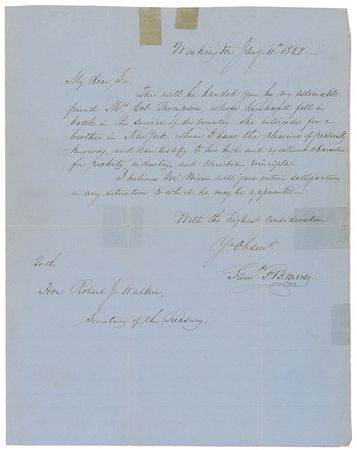 Washington Jany. 11th 1848
My dear Sir,
This will be handed you by my estimable
friend Mrs Col. Thompson, whose husband fell in
battle in the service of his Country. She intercedes for a
brother in New York, whom I have the pleasure of personally
knowing, and I can testify to his high and excellent character
for probity industry, and Christian principle
I believe Mr will give entire satisfaction
in any situation to which he may be appointed.
With the highest consideration
Yr Ob Servt
Saml F. B. Morse
To the
Hon: Robert J. Walker,
Secretary of the Treasury.